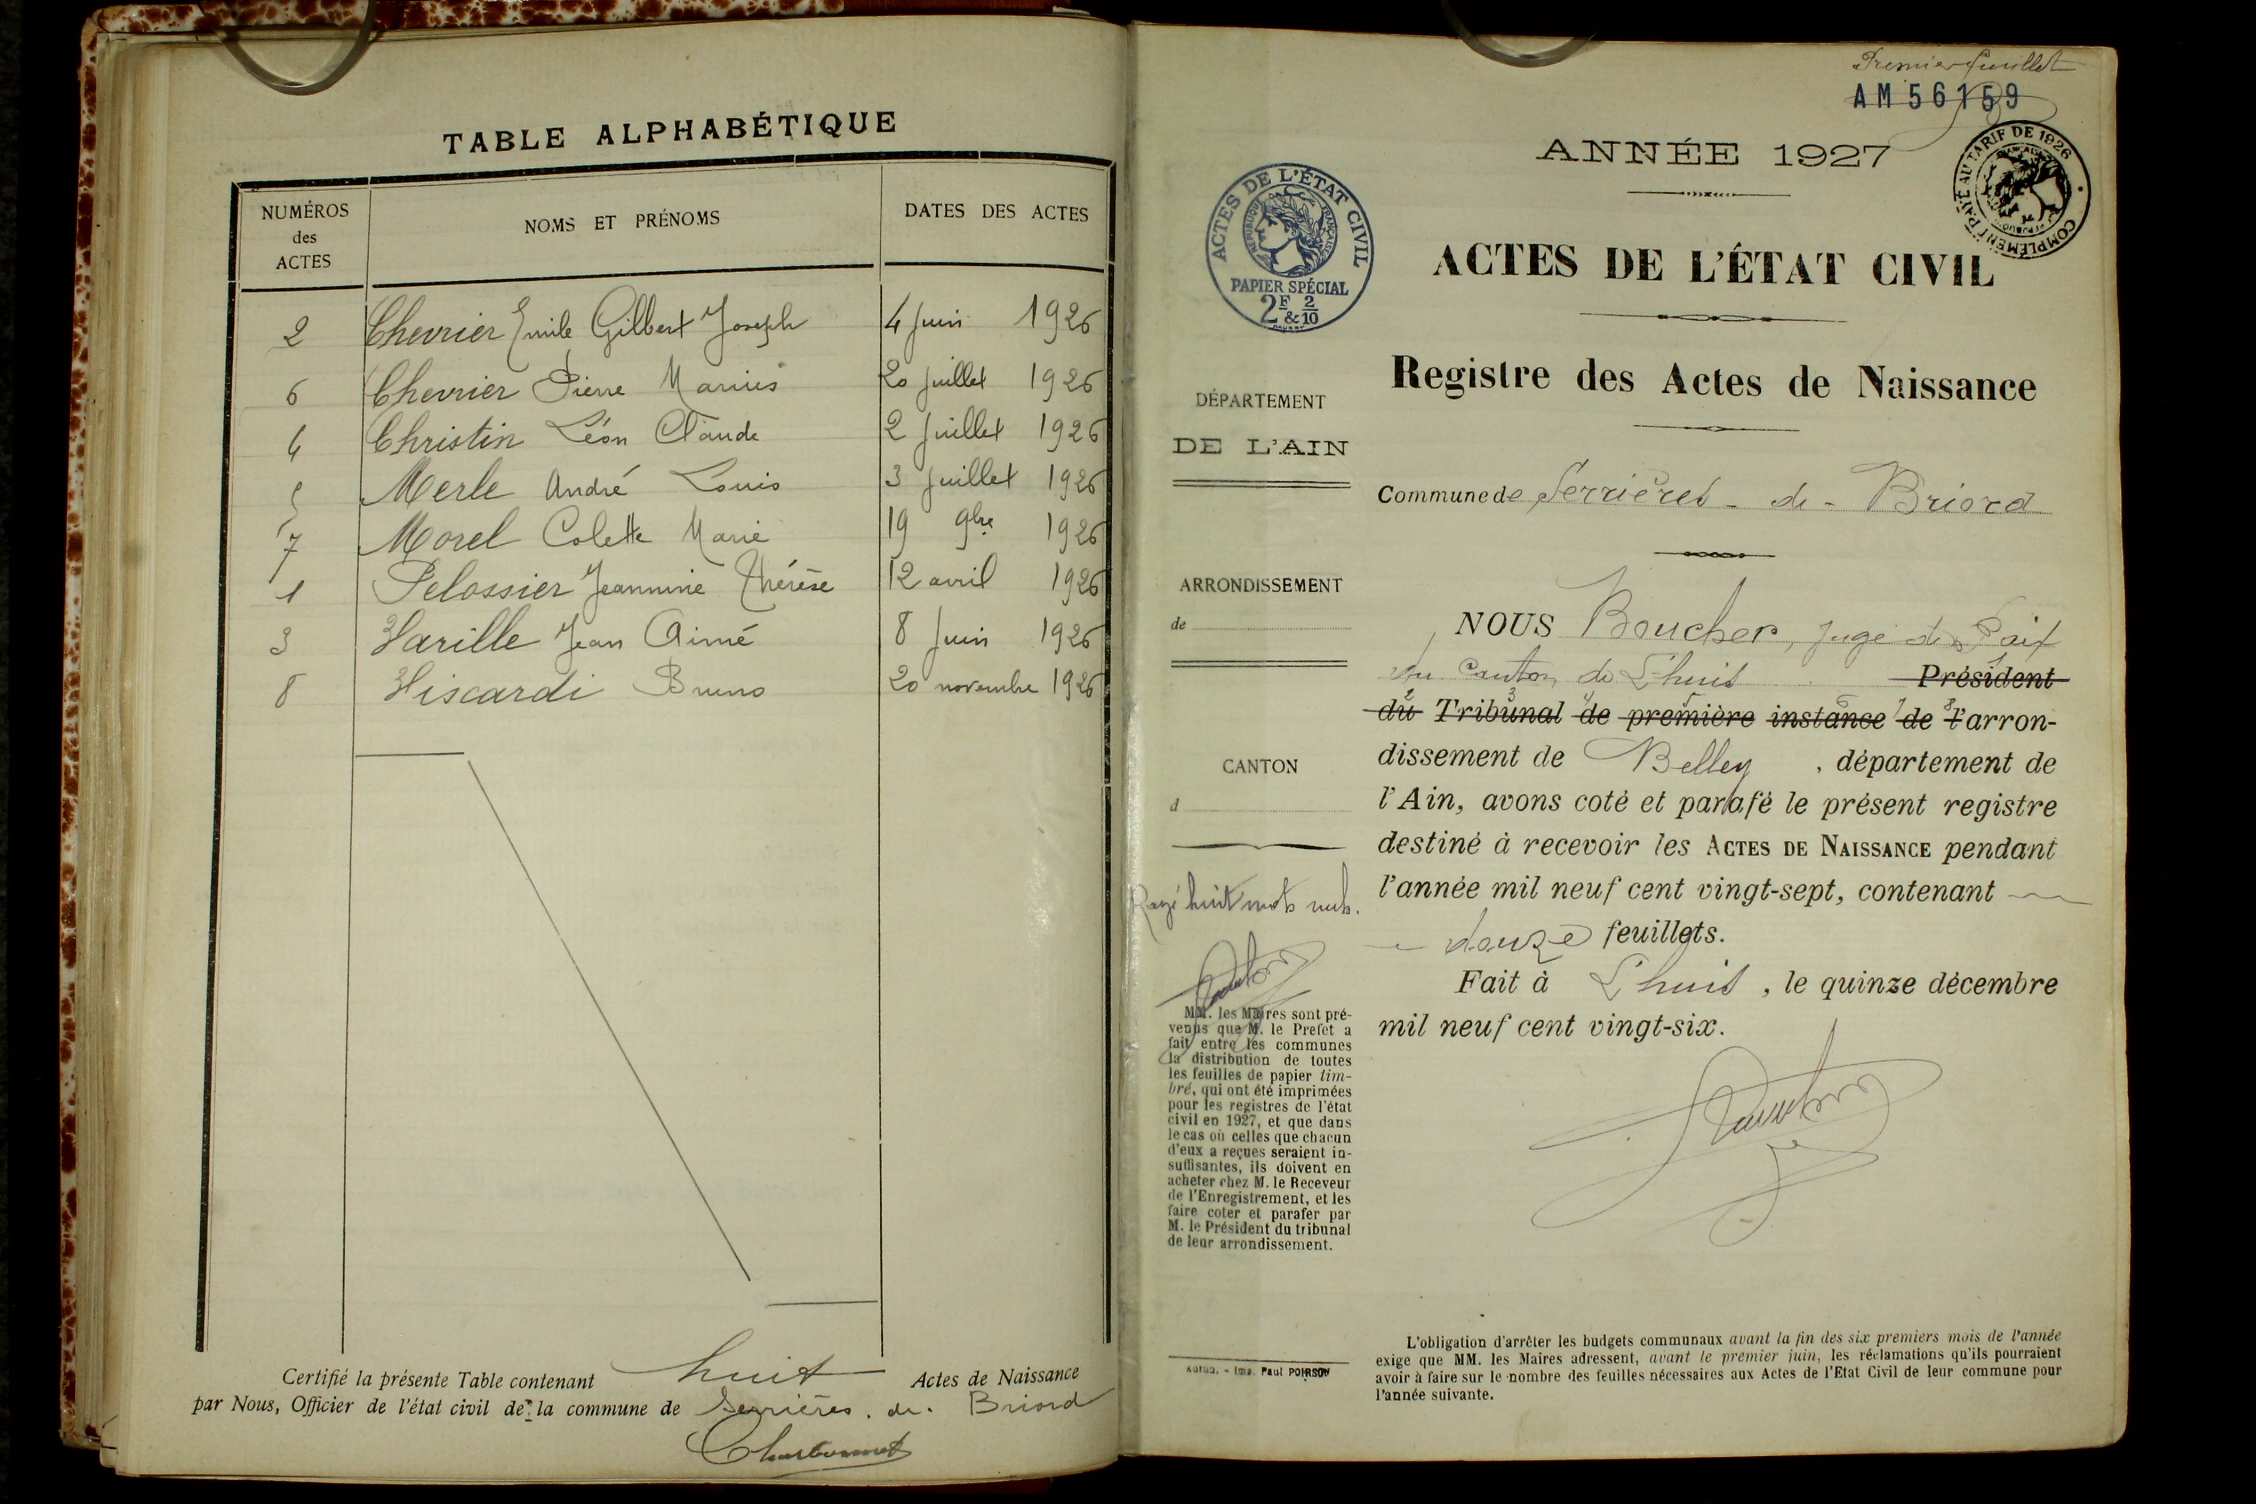 TABLE ALPHABÉTIQUE
NUMÉROS des ACTES NOMS ET PRÉNOMS DATES DES ACTES
2 Chevrier Emile Gilbert Joseph 4 Juin 1926
6 Chevrier Pierre Marius 20 Juillet 1926
4 Christin Léon Claude 2 Juillet 1926
5 Merle André Louis 3 Juillet 1926
7 Morel Colette Marie 19 9bre 1926
1 Pelossier Jeannine Thérèse 12 avril 1926
3 Varille Jean Aimé 8 Juin 1926
8 Viscardi Bruno 20 novembre 1926
Certifié la présente Table contenant huit Actes de Naissance
par Nous, Officier de l'état civil de la commune de Serrières. de. Briord
Charbonnet
Premier feuillet
AM 56159
ANNÉE 1927
COMPLÉMENT PAYÉ AU TARIF DE 1926
ACTES DE L'ÉTAT CIVIL
RÉPUBLIQUE FRANÇAISE
PAPIER SPÉCIAL
2F & 2/10
ACTES DE L'ÉTAT CIVIL
Registre des Actes de Naissance
DÉPARTEMENT
DE L'AIN
Commune de Serrières - de - Briord
ARRONDISSEMENT
de
CANTON
d
NOUS Boucher, juge de Paix
du Canton de L'huis Président
du Tribunal de première instance de l'arron-
dissement de Belley, département de
l'Ain, avons coté et parafé le présent registre
destiné à recevoir les ACTES DE NAISSANCE pendant
l'année mil neuf cent vingt-sept, contenant
douze feuillets.
Fait à L'huis, le quinze décembre
mil neuf cent vingt-six.
Rayé huit mots nuls.
MM. les Maires sont pré-
venus que M. le Prefet a
fait entre les communes
la distribution de toutes
les feuilles de papier tim-
bré, qui ont été imprimées
pour les registres de l'état
civil en 1927, et que dans
le cas où celles que chacun
d'eux a reçues seraient in-
suffisantes, ils doivent en
acheter chez M. le Receveur
de l'Enregistrement, et les
faire coter et parafer par
M. le Président du tribunal
de leur arrondissement.
Imp. Paul POIRSON
L'obligation d'arrêter les budgets communaux avant la fin des six premiers mois de l'année
exige que MM. les Maires adressent, avant le premier juin, les réclamations qu'ils pourraient
avoir à faire sur le nombre des feuilles nécessaires aux Actes de l'Etat Civil de leur commune pour
l'année suivante.